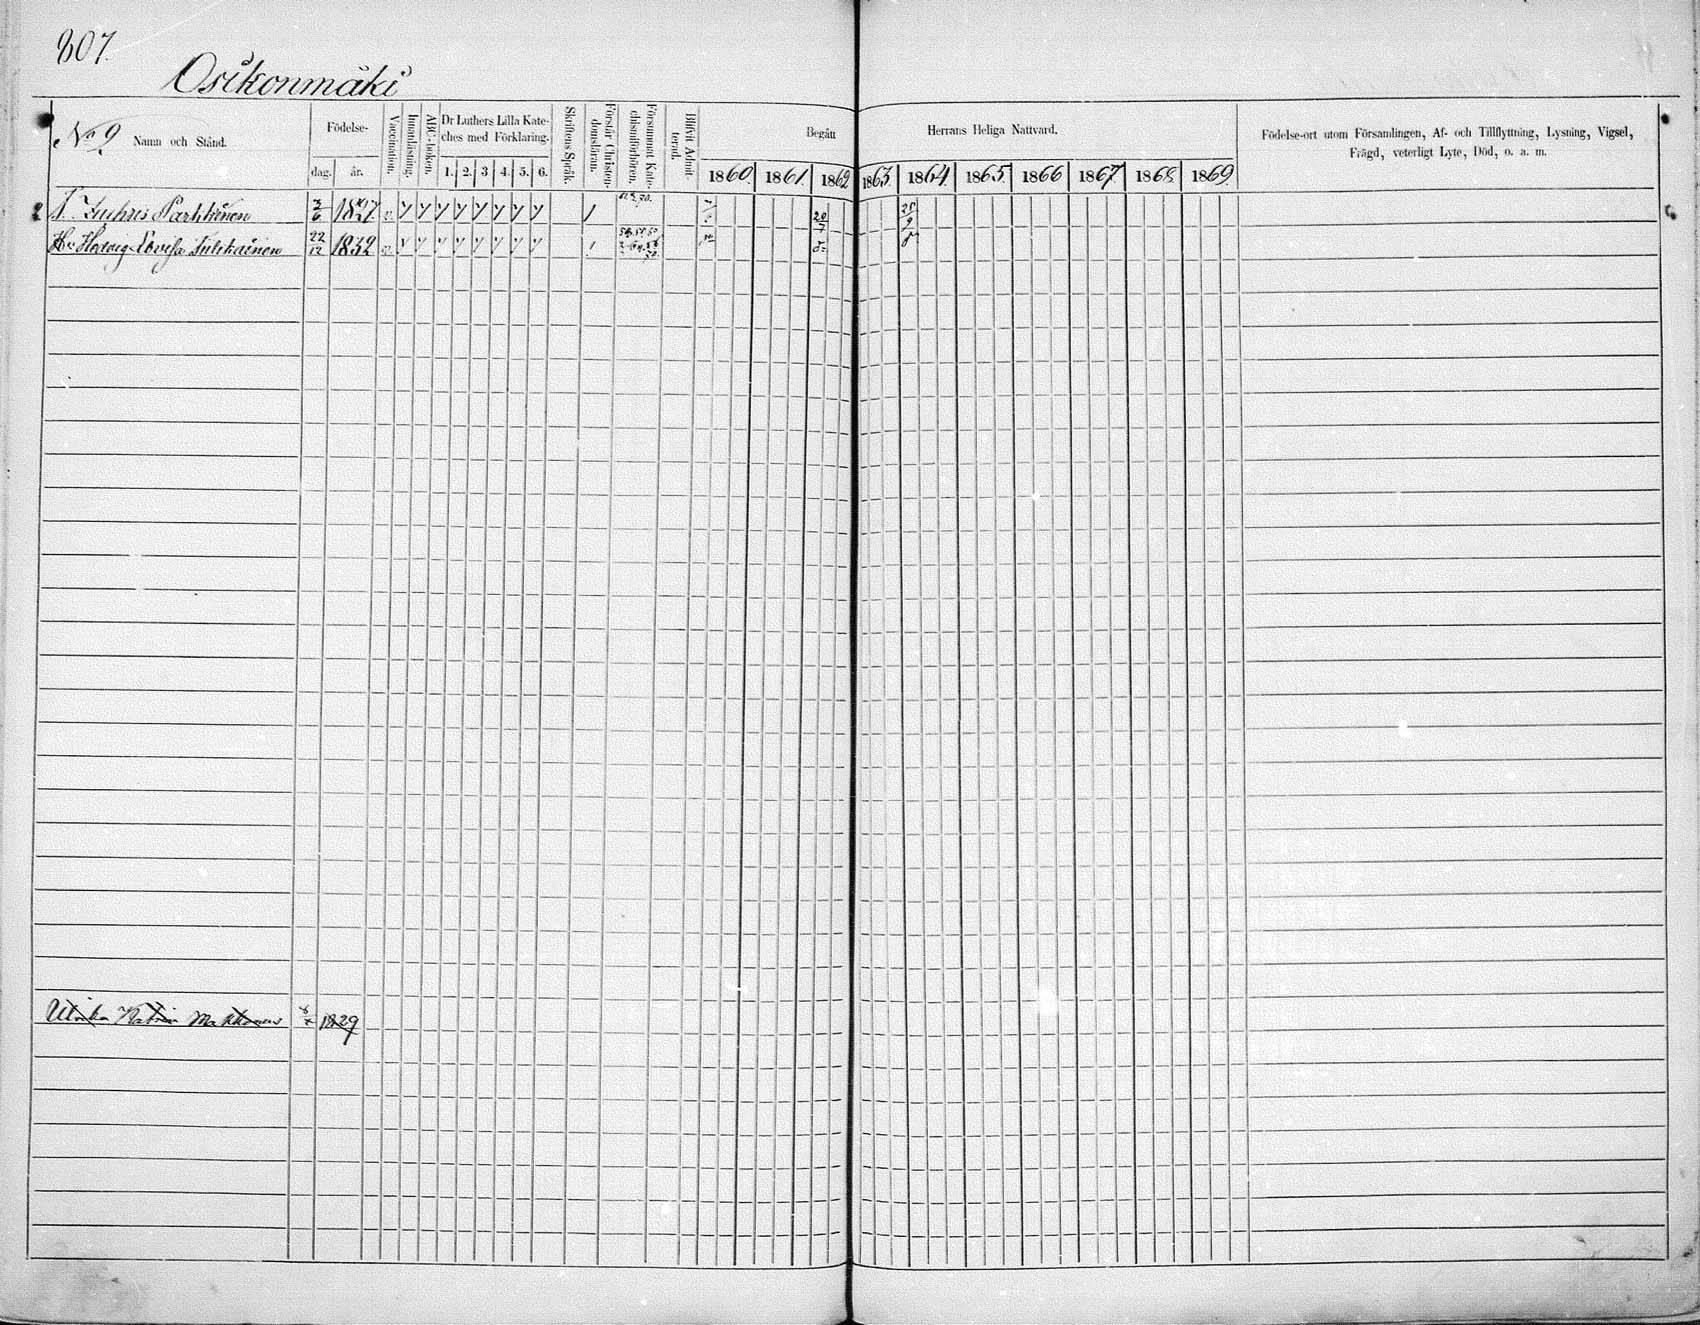 807.
Osikonmäki
No 9
Namn och Stånd.
Födelse-
dag. år.
Vaccination.
Innanläsning.
ABC-boken.
Dr Luthers Lilla Kate-
ches med Förklaring.
1. 2. 3 4. 5. 6.
Skriftens Språk.
Förstår Christen-
domsläran.
Försummat Kate-
chismiförhören.
Blifvit Admit-
terad.
Begått Herrans Heliga Nattvard.
1860. 1861. 1862 1863. 1864. 1865. 1866 1867 1868 1869.
Födelse-ort utom Församlingen, Af- och Tillflyttning, Lysning, Vigsel,
Frägd, veterligt Lyte, Död, o. a. m.
Parkkinen
Hu Hedvig Lovisa Tulikainen 22/12 1832
Ulrika Katrin Makkonen 1829